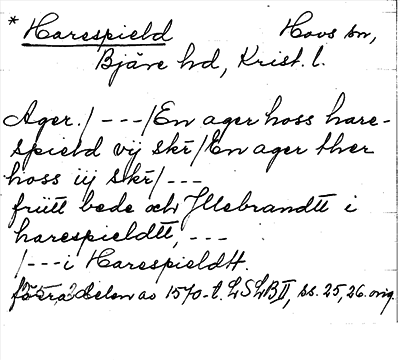 * Harespield Hovs sn,
Bjäre hd, Krist. l.
Ager. / --- / En ager hoss hare-
spield vij skr / En ager ther
hoss iij skr / ---
friitt bede och Illebrandtt i
harespieldtt, ---
/ --- i Harespieldtt.
förra delen av 1570-t. LSLB II, ss. 25, 26. orig.